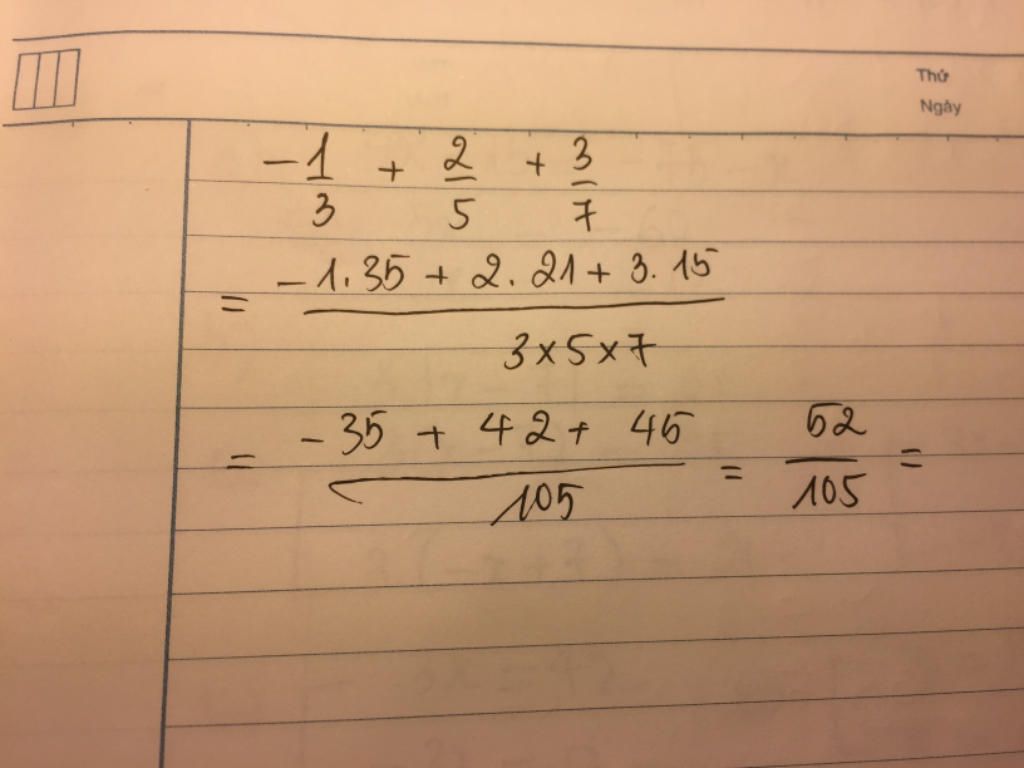 Thứ
Ngày
- 1/3 + 2/5 + 3/7
= (-1.35 + 2.21 + 3.15)/(3×5×7)
= (-35 + 42 + 45)/105 = 52/105 =